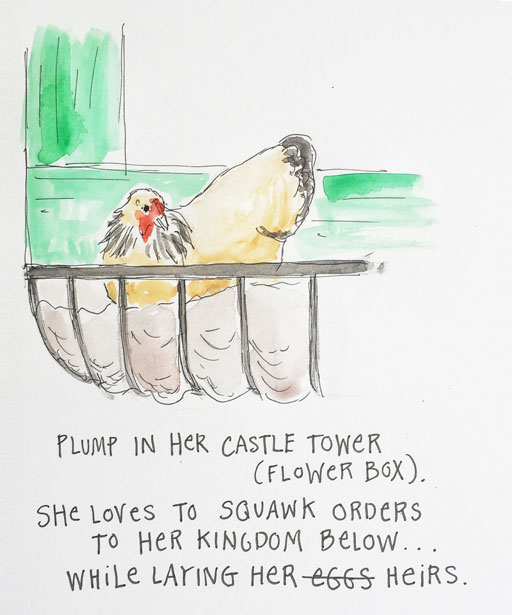 PLUMP IN HER CASTLE TOWER
(FLOWER BOX).
SHE LOVES TO SQUAWK ORDERS
TO HER KINGDOM BELOW...
WHILE LAYING HER ~~EGGS~~ HEIRS.